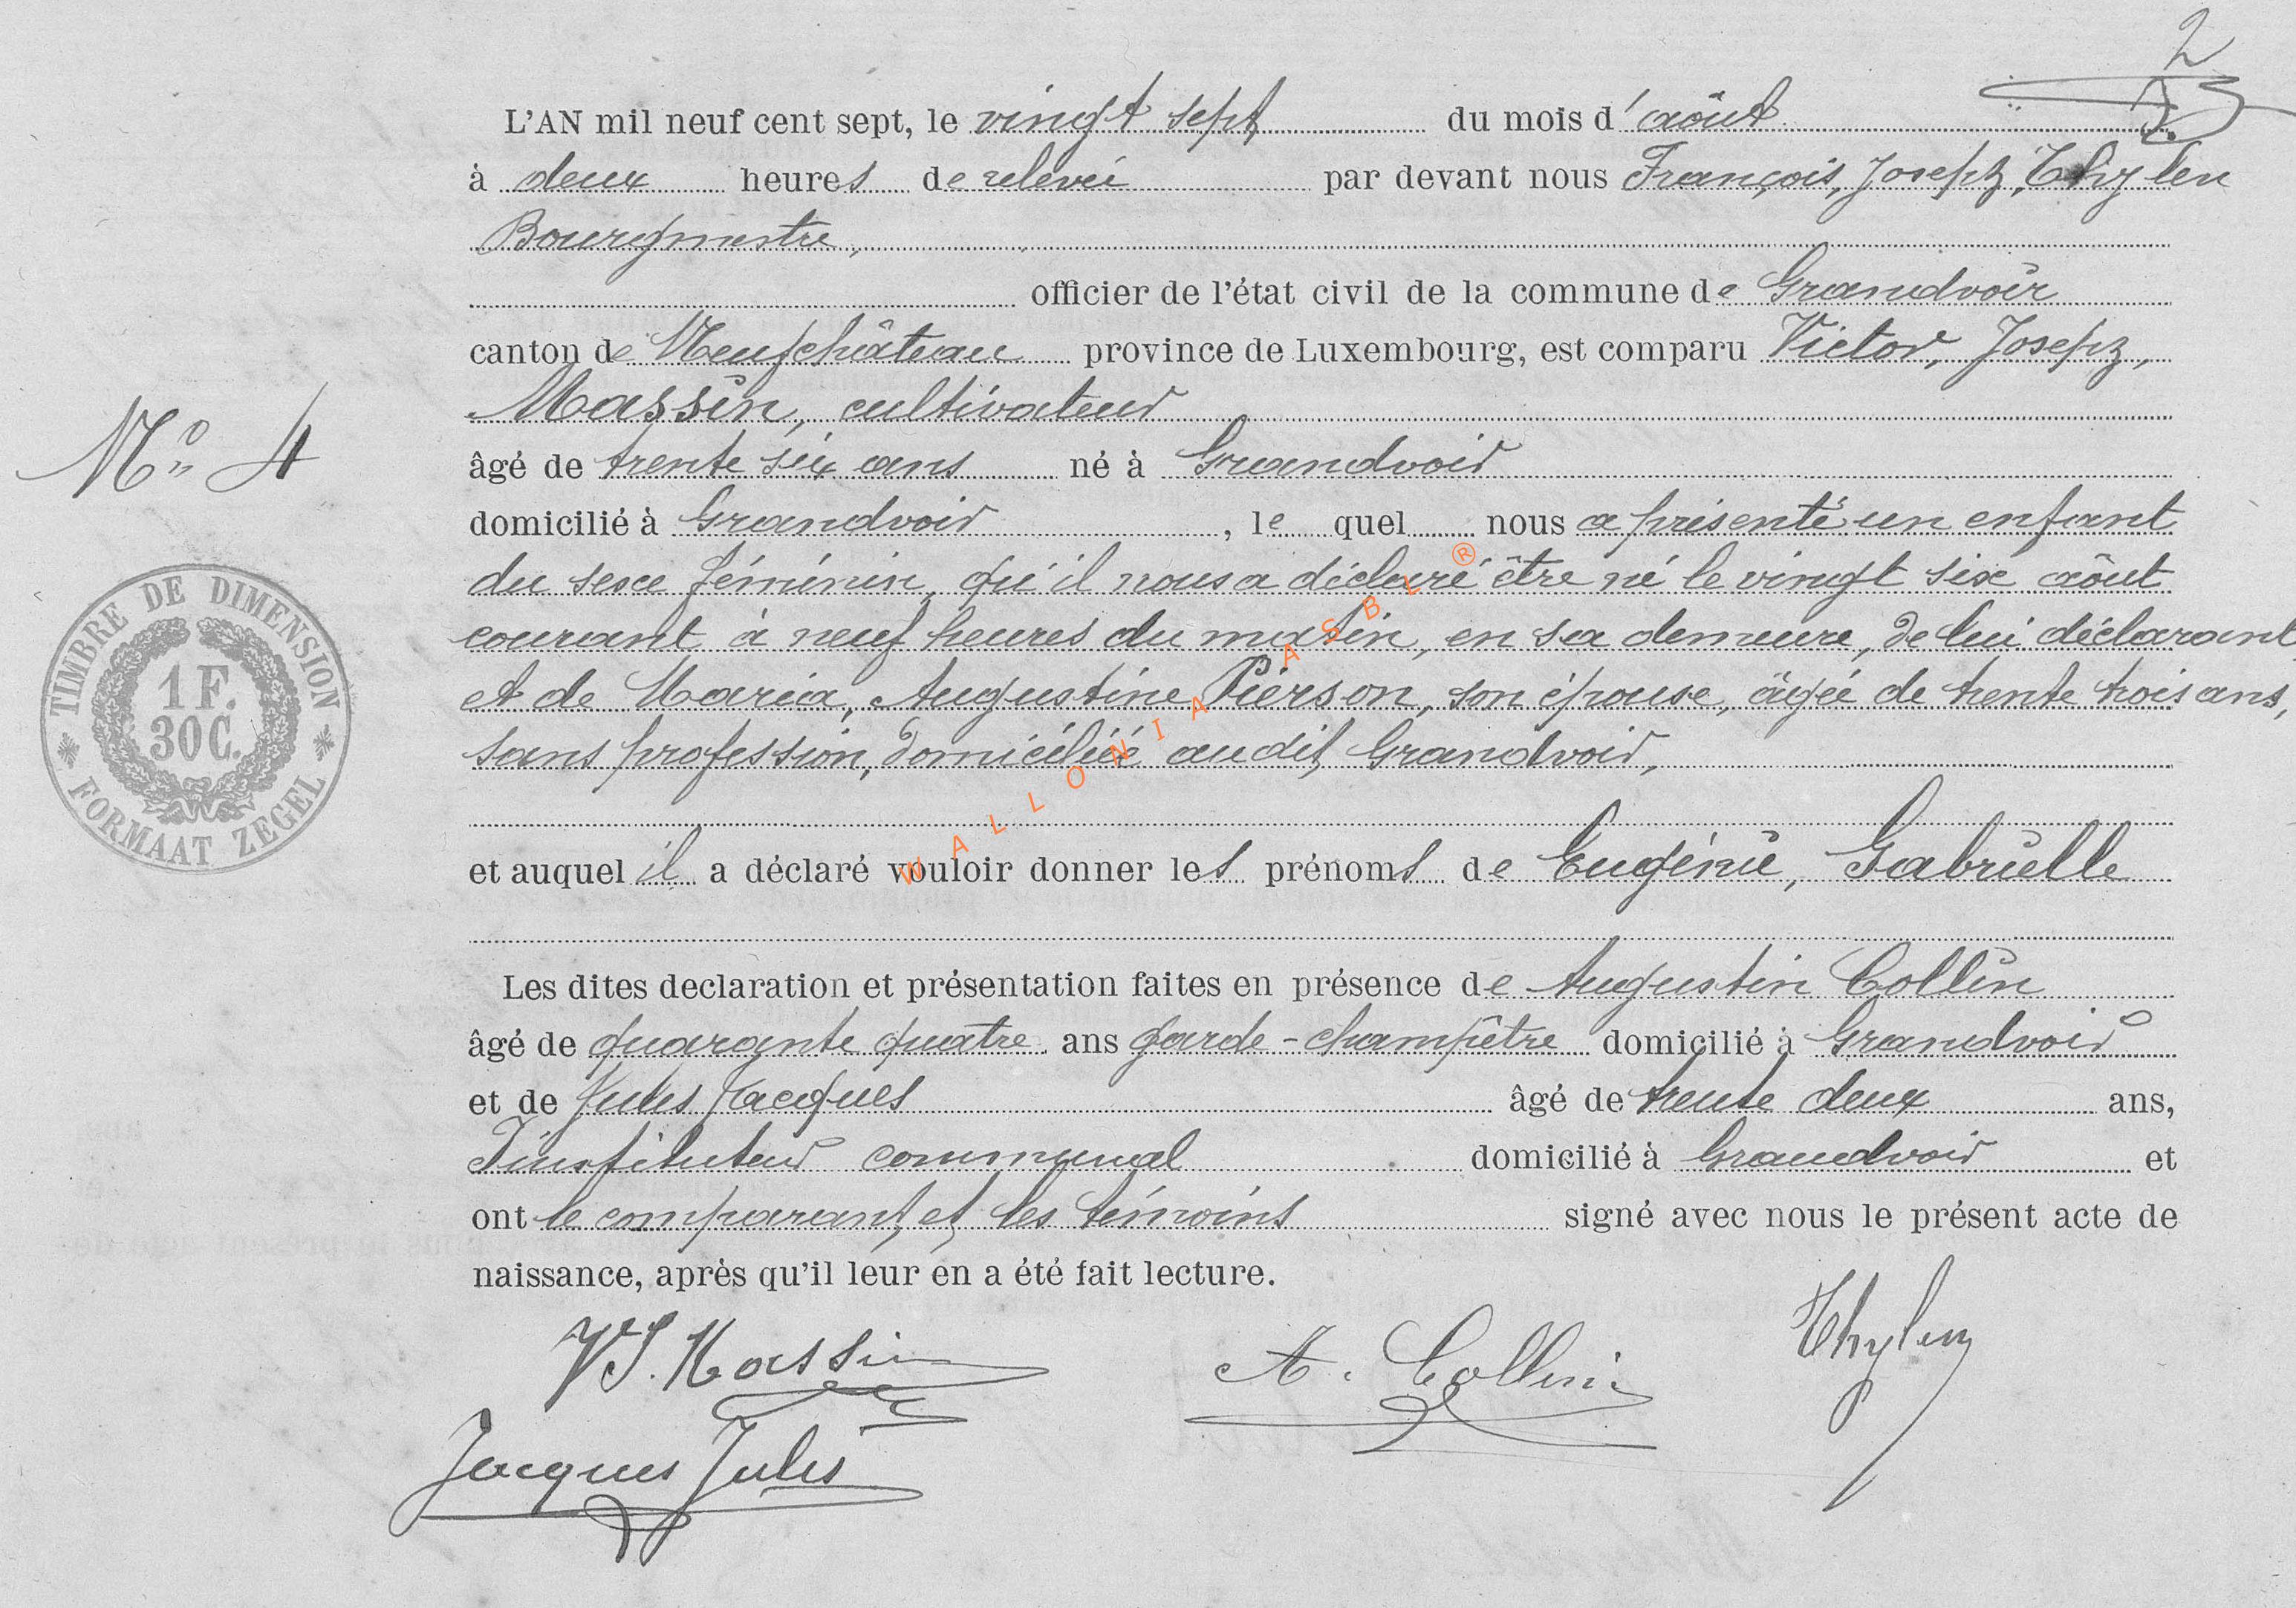 2
L'AN mil neuf cent sept, le vingt sept du mois d'août
à deux heures de relevée par devant nous François, Joseph, Thylen
Bourgmestre,
officier de l'état civil de la commune de Grandvoir
canton de Neufchâteau province de Luxembourg, est comparu Victor, Joseph,
Massin, cultivateur
N° 4
âgé de trente six ans né à Grandvoir
domicilié à Grandvoir, le quel nous a présenté un enfant
du sexe féminin, qu'il nous a déclaré être né le vingt six août
courant à neuf heures du matin, en sa demeure, de lui déclarant
et de Maria, Augustine Pierson, son épouse, âgée de trente trois ans,
sans profession, domiciliée audit Grandvoir,
TIMBRE DE DIMENSION
1 F.
30 C.
FORMAAT ZEGEL
WALLONIA ASBL ®
et auquel il a déclaré vouloir donner les prénoms de Eugénie, Gabrielle
Les dites declaration et présentation faites en présence de Augustin Collin
âgé de quarante quatre ans garde-champêtre domicilié à Grandvoir
et de Jules Jacques âgé de trente deux ans,
Instituteur communal domicilié à Grandvoir et
ont le comparant et les témoins signé avec nous le présent acte de
naissance, après qu'il leur en a été fait lecture.
VJ. Massin A. Collin Thylen
Jacques Jules